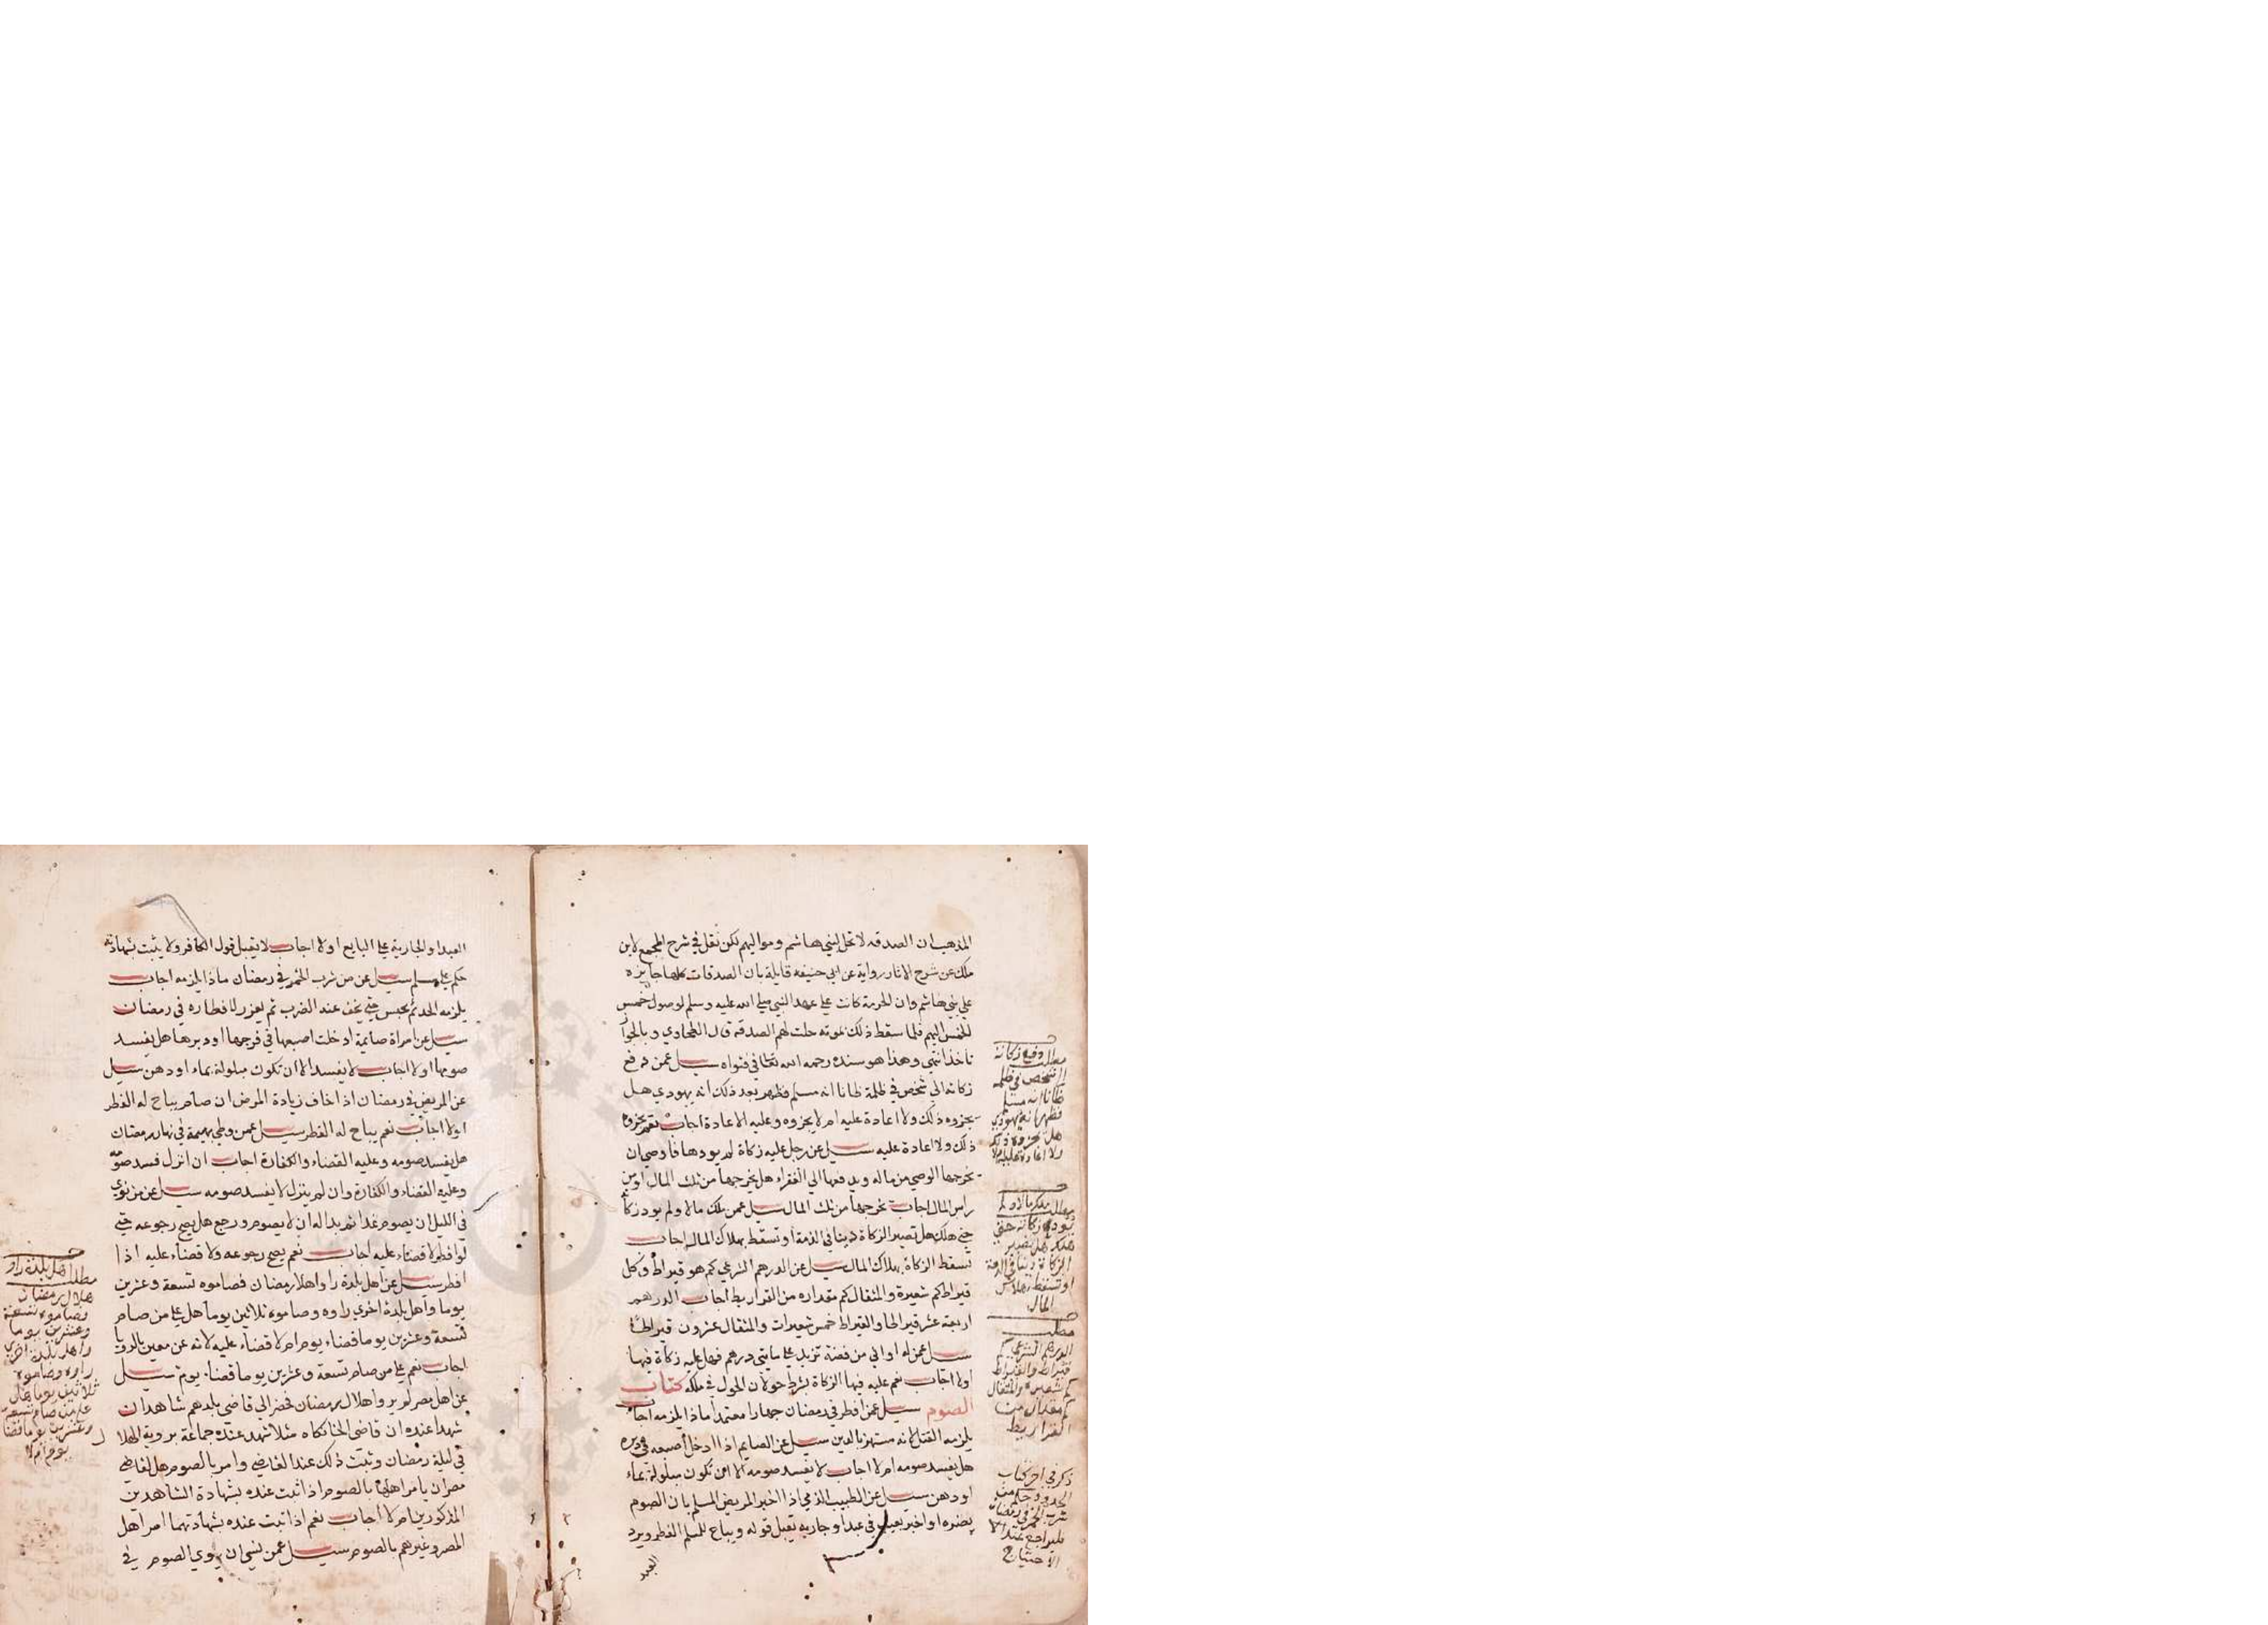 المذهب ان الصدقه لا تحل لبني هاشم ومواليهم لكن نقل في شرح المجمع لابن
ملك عن شرح الاثار رواية عن ابي حنيفه قايلة بان الصدقات كلها جايزه
علي بني هاشم وان الحرمة كانت علي عهد النبي صلي الله عليه وسلم لوصول خمس
الخمس اليهم فلما سقط ذلك بموته حلت لهم الصدقه قال الطحاوي وبالجواز
ناخذ انتهي وهذا هو سنده رحمه الله تعالي في فتواه سيل عمن دفع
زكاته الي شخص في ظلمة ظانا انه مسلم فظهر بعد ذلك انه يهودي هل
يجزوه ذلك ولا اعادة عليه ام لا يجزوه وعليه الاعادة اجاب نعم يجزوه
ذلك ولا اعادة عليه سيل عن رجل عليه زكاة لم يودها فاوصي ان
يخرجها الوصي من ماله ويدفعها الي الفقراء هل يخرجها من ثلث المال او من
راس المال اجاب يخرجها من ثلث المال سيل عمن ملك مالا ولم يود زكاته
حتي هلك هل تصير الزكاة دينا في الذمة او تسقط بهلاك المال اجاب
تسقط الزكاة بهلاك المال سيل عن الدرهم الشرعي كم هو قيراط وكل
قيراط كم شعيرة والمثقال كم مقداره من القراريط اجاب الدرهم
اربعة عشر قيراطا والقيراط خمس شعيرات والمثقال عشرون قيراطا
سيل عمن له اواني من فضة تزيد علي مايتي درهم فهل عليه زكاة فيها
اولا اجاب نعم عليه فيها الزكاة بشرط حولان الحول في ملكه كتاب
الصوم سيل عمن افطر في رمضان جهارا معتمدا ماذا يلزمه اجاب
يلزمه القتل لانه مستهز بالدين سيل عن الصايم اذا ادخل اصبعه في دبره
هل يفسد صومه ام لا اجاب لا يفسد صومه الا ان تكون مبلولة بماء
او دهن سيل عن الطبيب الذمي اذا اخبر المريض المسلم بان الصوم
يضره او اخبر بعيب في عبد او جارية يقبل قوله ويباح للمسلم الفطر ويرد
العبد
مطلب دفع زكاته
الي شخص في ظلمه
ظانا انه مسلم
فظهر انه يهودي
هل يجزوه ذلك
ولا اعادة عليه ام لا
مطلب ملك مالا ولم
يودي زكاته حتي
هلك هل تصير
الزكاة دينا في الذمة
او تسقط بهلاك
المال
مطلب
الدرهم الشرعي كم
قيراط والقيراط
كم شعيرة والمثقال
كم مقداره من
القراريط
ذكر في اخر كتاب
الحدود حكم من
شرب الخمر في رمضان
فليراجع عند
الاحتياج
العبد او الجارية علي البايع اولا اجاب لا يقبل قول الكافر ولا يثبت بشهادته
حكم علي مسلم سيل عن من شرب الخمر في رمضان ماذا يلزمه اجاب
يلزمه الحد ثم يحبس حتي يخف عند الضرب ثم يعزر لافطاره في رمضان
سيل عن امراة صايمة ادخلت اصبعها في فرجها او دبرها هل يفسد
صومها اولا اجاب لا يفسد الا ان تكون مبلولة بماء او دهن سيل
عن المريض في رمضان اذا خاف زيادة المرض ان صام يباح له الفطر
اولا اجاب نعم يباح له الفطر سيل عمن وطي بهيمة في نهار رمضان
هل يفسد صومه وعليه القضاء والكفارة اجاب ان انزل فسد صومه
وعليه القضاء والكفارة وان لم ينزل لا يفسد صومه سيل عن من نوي
في الليل ان يصوم غدا ثم بدا له ان لا يصوم ورجع هل يصح رجوعه حتي
لو افطر لا قضاء عليه اجاب نعم يصح رجوعه ولا قضاء عليه اذا
افطر سيل عن اهل بلدة راوا هلال رمضان فصاموه تسعة وعشرين
يوما واهل بلدة اخري راوه وصاموه ثلاثين يوما هل علي من صام
تسعة وعشرين يوما قضاء يوم ام لا قضاء عليه لانه عن معين بالرويا
اجاب نعم علي من صام تسعة وعشرين يوما قضاء يوم سيل
عن اهل مصر لم يروا هلال رمضان فحضر الي قاضي بلدهم شاهدان
شهدا عنده ان قاضي الخانكاه مثلا شهد عنده جماعة بروية الهلال
في ليلة رمضان وثبت ذلك عند القاضي وامر بالصوم هل لقاضي
مصر ان يامر اهلها بالصوم اذا ثبت عنده بشهادة الشاهدين
المذكورين ام لا اجاب نعم اذا ثبت عنده بشهادتهما امر اهل
المصر وغيرهم بالصوم سيل عمن نسي ان ينوي الصوم في
مطلب اهل بلدة راوا
هلال رمضان
فصاموه تسعة
وعشرين يوما
واهل بلدة اخري
راوه وصاموه
ثلاثين يوما هل
علي من صام تسعة
وعشرين يوما قضاء
يوم ام لا